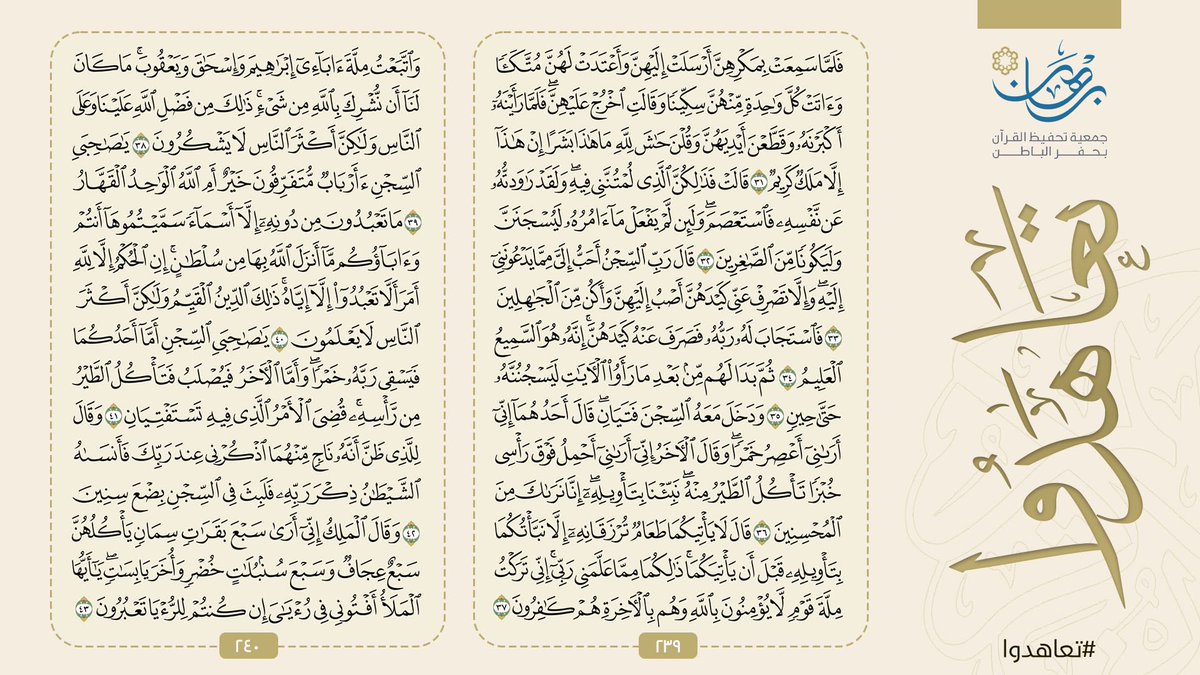 فَلَمَّا سَمِعَتْ بِمَكْرِهِنَّ أَرْسَلَتْ إِلَيْهِنَّ وَأَعْتَدَتْ لَهُنَّ مُتَّكَـًٔا
وَءَاتَتْ كُلَّ وَٰحِدَةٍ مِّنْهُنَّ سِكِّينًا وَقَالَتِ ٱخْرُجْ عَلَيْهِنَّ ۖ فَلَمَّا رَأَيْنَهُۥٓ
أَكْبَرْنَهُۥ وَقَطَّعْنَ أَيْدِيَهُنَّ وَقُلْنَ حَٰشَ لِلَّهِ مَا هَٰذَا بَشَرًا إِنْ هَٰذَآ
إِلَّا مَلَكٌ كَرِيمٌ ٣١ قَالَتْ فَذَٰلِكُنَّ ٱلَّذِى لُمْتُنَّنِى فِيهِ ۖ وَلَقَدْ رَٰوَدتُّهُۥ
عَن نَّفْسِهِۦ فَٱسْتَعْصَمَ ۖ وَلَئِن لَّمْ يَفْعَلْ مَآ ءَامُرُهُۥ لَيُسْجَنَنَّ
وَلَيَكُونًا مِّنَ ٱلصَّٰغِرِينَ ٣٢ قَالَ رَبِّ ٱلسِّجْنُ أَحَبُّ إِلَىَّ مِمَّا يَدْعُونَنِىٓ
إِلَيْهِ ۖ وَإِلَّا تَصْرِفْ عَنِّى كَيْدَهُنَّ أَصْبُ إِلَيْهِنَّ وَأَكُن مِّنَ ٱلْجَٰهِلِينَ
٣٣ فَٱسْتَجَابَ لَهُۥ رَبُّهُۥ فَصَرَفَ عَنْهُ كَيْدَهُنَّ ۚ إِنَّهُۥ هُوَ ٱلسَّمِيعُ
ٱلْعَلِيمُ ٣٤ ثُمَّ بَدَا لَهُم مِّنۢ بَعْدِ مَا رَأَوُا۟ ٱلْـَٔايَٰتِ لَيَسْجُنُنَّهُۥ
حَتَّىٰ حِينٍ ٣٥ وَدَخَلَ مَعَهُ ٱلسِّجْنَ فَتَيَانِ ۖ قَالَ أَحَدُهُمَآ إِنِّىٓ
أَرَىٰنِىٓ أَعْصِرُ خَمْرًا ۖ وَقَالَ ٱلْـَٔاخَرُ إِنِّىٓ أَرَىٰنِىٓ أَحْمِلُ فَوْقَ رَأْسِى
خُبْزًا تَأْكُلُ ٱلطَّيْرُ مِنْهُ ۖ نَبِّئْنَا بِتَأْوِيلِهِۦٓ ۖ إِنَّا نَرَىٰكَ مِنَ
ٱلْمُحْسِنِينَ ٣٦ قَالَ لَا يَأْتِيكُمَا طَعَامٌ تُرْزَقَانِهِۦٓ إِلَّا نَبَّأْتُكُمَا
بِتَأْوِيلِهِۦ قَبْلَ أَن يَأْتِيَكُمَا ۚ ذَٰلِكُمَا مِمَّا عَلَّمَنِى رَبِّىٓ ۚ إِنِّى تَرَكْتُ
مِلَّةَ قَوْمٍ لَّا يُؤْمِنُونَ بِٱللَّهِ وَهُم بِٱلْـَٔاخِرَةِ هُمْ كَٰفِرُونَ ٣٧
٢٣٩
وَٱتَّبَعْتُ مِلَّةَ ءَابَآءِىٓ إِبْرَٰهِيمَ وَإِسْحَٰقَ وَيَعْقُوبَ ۚ مَا كَانَ
لَنَآ أَن نُّشْرِكَ بِٱللَّهِ مِن شَىْءٍ ۚ ذَٰلِكَ مِن فَضْلِ ٱللَّهِ عَلَيْنَا وَعَلَى
ٱلنَّاسِ وَلَٰكِنَّ أَكْثَرَ ٱلنَّاسِ لَا يَشْكُرُونَ ٣٨ يَٰصَٰحِبَىِ
ٱلسِّجْنِ ءَأَرْبَابٌ مُّتَفَرِّقُونَ خَيْرٌ أَمِ ٱللَّهُ ٱلْوَٰحِدُ ٱلْقَهَّارُ
٣٩ مَا تَعْبُدُونَ مِن دُونِهِۦٓ إِلَّآ أَسْمَآءً سَمَّيْتُمُوهَآ أَنتُمْ
وَءَابَآؤُكُم مَّآ أَنزَلَ ٱللَّهُ بِهَا مِن سُلْطَٰنٍ ۚ إِنِ ٱلْحُكْمُ إِلَّا لِلَّهِ
أَمَرَ أَلَّا تَعْبُدُوٓا۟ إِلَّآ إِيَّاهُ ۚ ذَٰلِكَ ٱلدِّينُ ٱلْقَيِّمُ وَلَٰكِنَّ أَكْثَرَ
ٱلنَّاسِ لَا يَعْلَمُونَ ٤٠ يَٰصَٰحِبَىِ ٱلسِّجْنِ أَمَّآ أَحَدُكُمَا
فَيَسْقِى رَبَّهُۥ خَمْرًا ۖ وَأَمَّا ٱلْـَٔاخَرُ فَيُصْلَبُ فَتَأْكُلُ ٱلطَّيْرُ
مِن رَّأْسِهِۦ ۚ قُضِىَ ٱلْأَمْرُ ٱلَّذِى فِيهِ تَسْتَفْتِيَانِ ٤١ وَقَالَ
لِلَّذِى ظَنَّ أَنَّهُۥ نَاجٍ مِّنْهُمَا ٱذْكُرْنِى عِندَ رَبِّكَ فَأَنسَىٰهُ
ٱلشَّيْطَٰنُ ذِكْرَ رَبِّهِۦ فَلَبِثَ فِى ٱلسِّجْنِ بِضْعَ سِنِينَ
٤٢ وَقَالَ ٱلْمَلِكُ إِنِّىٓ أَرَىٰ سَبْعَ بَقَرَٰتٍ سِمَانٍ يَأْكُلُهُنَّ
سَبْعٌ عِجَافٌ وَسَبْعَ سُنۢبُلَٰتٍ خُضْرٍ وَأُخَرَ يَابِسَٰتٍ ۖ يَٰٓأَيُّهَا
ٱلْمَلَأُ أَفْتُونِى فِى رُءْيَٰىَ إِن كُنتُمْ لِلرُّءْيَا تَعْبُرُونَ ٤٣
٢٤٠
برهان
جمعية تحفيظ القرآن
بحفر الباطن
تعاهدوا
#تعاهدوا